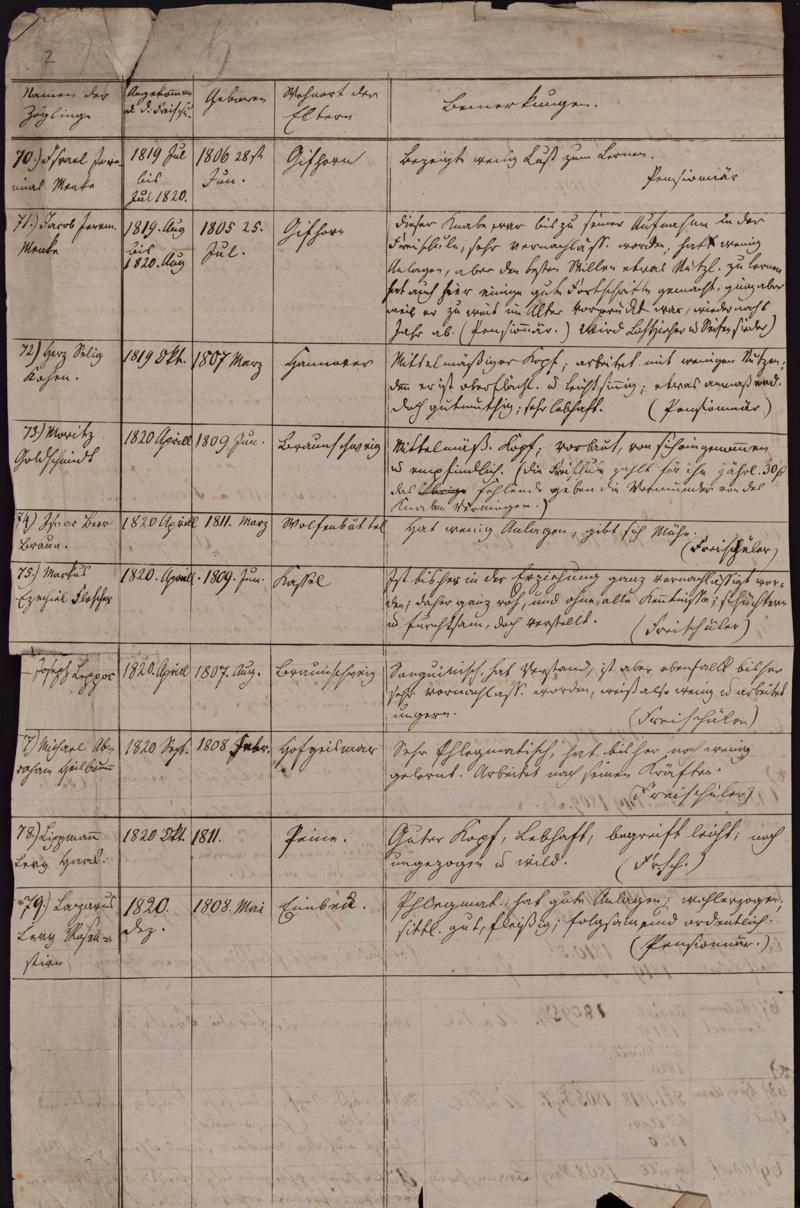 2
Namen der Zöglinge
Angekommen i. d. Freischu.
Geboren
Wohnort der Eltern
Bemerkungen.
70.) Israel Jere-
mias Menke
1819 Jul
bis
Jul 1820.
1806 28st
Jun.
Gifhorn
Bezeigte wenig Lust zum Lernen.
Pensionnär
71.) Jacob Jerem.
Menke
1819. Aug
bis
1820. Aug
1805 25.
Jul.
Gifhorn
Dieser Knabe war bis zu seiner Aufnahme in der
Freischule, sehr vernachläss. worden, hatte wenig
Anlagen, aber den besten Willen etwas Nützl. zu lernen
hat auch hier einige gute Fortschritte gemacht, ging aber
weil er zu weit im Alter vorgerückt war, wieder nach 1
Jahr ab. (Pensionnär.) Wird Lichtzieher u Seifensieder)
72.) Herz Selig
Kohen.
1819 Okt.
1807 Marz
Hannover
Mittelmäßiger Kopf; arbeitet mit wenigen Nutzen;
denn er ist oberflächl. u leichtsinnig; etwas anmaßend.
doch gutmüthig; sehr lebhaft. (Pensionnär)
73.) Moritz
Goldschmidt
1820 Aprill
1809 Jun.
Braunschweig
Mittelmäß. Kopf; vorlaut, von sich eingenommen
u empfindlich. (die Freischule zahlt für ihn jährl. 30
das fehlende geben die Vormünder von des
Knaben Vermögen.)
74.) Isaac Beer
Braun.
1820. Aprill
1811. Marz
Wolfenbüttel
Hat wenig Anlagen, gibt sich Mühe.
(Freischüler)
75.) Markus
Ezechiel Flescher
1820. Aprill.
1809. Jun.
Kassel
Ist bisher in der Erziehung ganz vernachlässigt wor-
den; daher ganz roh, und ohne alle Kenntnisse; schüchtern
u furchtsam, doch verstellt. (Freischüler)
Joseph
1820. Aprill
1807. Aug.
Braunschweig
Sanguinisch, hat Verstand, ist aber ebenfalls bisher
sehr vernachläss. worden, weiß also wenig u arbeitet
ungern. (Freischüler)
7) Michael Ab-
raham Heilbrunn
1820 Sept.
1808 Febr.
Hofgeismar
Sehr Phlegmatisch, hat bisher noch wenig
gelernt. Arbeitet nach seinen Kräften.
(Freischüler)
78.) Lippmann
Levy Haas.
1820 Okt.
1811.
Peine.
Guter Kopf, Lebhaft, begreift leicht; noch
ungezogen u wild. (Frsch.)
79.) Lazarus
Levy Rosen-
stein
1820.
Dez.
1808. Mai
Einbeck.
Phlegmat.; hat gute Anlagen, wohlerzogen,
sittl. gut, fleißig; folgsam und ordentlich.
(Pensionnär.)